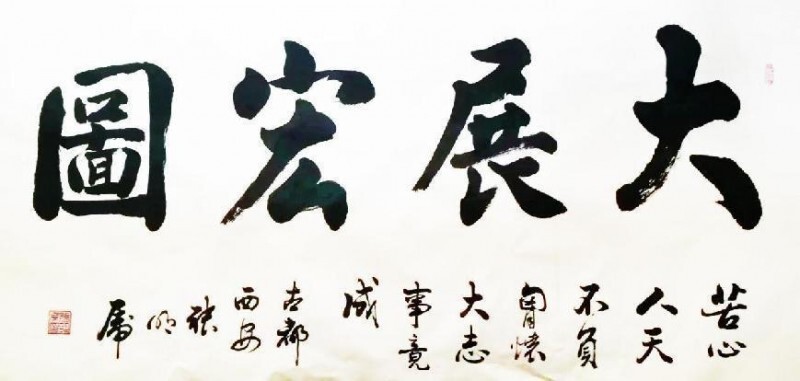 大展宏圖
苦心
人天
不負
胸懷
大志
事竟
成
古都
西安
張
虎